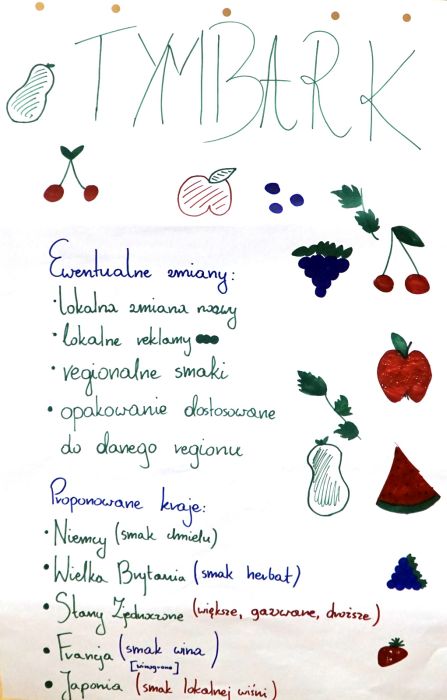 TYMBARK
Ewentualne zmiany:
• lokalna zmiana nazwy
• lokalne reklamy
• regionalne smaki
• opakowanie dostosowane
do danego regionu
Proponowane kraje:
• Niemcy (smak chmielu)
• Wielka Brytania (smak herbat)
• Stany Zjednoczone (większe, gazowane, droższe)
• Francja (smak wina)
[winogrono]
• Japonia (smak lokalnej wiśni)